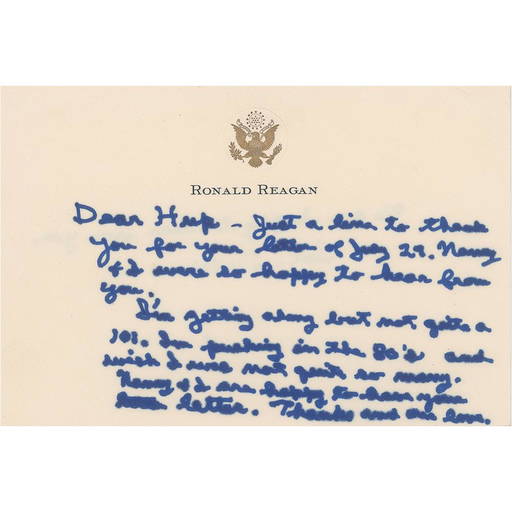 RONALD REAGAN
Dear Heep – Just a line to thank
you for your letter of July 29. Nancy
& I were so happy to hear from
you.
I'm getting along but not quite a
101. I'm pushing in the 80's and
wish I was not quite so many.
Nancy & I are happy to have your
letter. Thanks and our love.